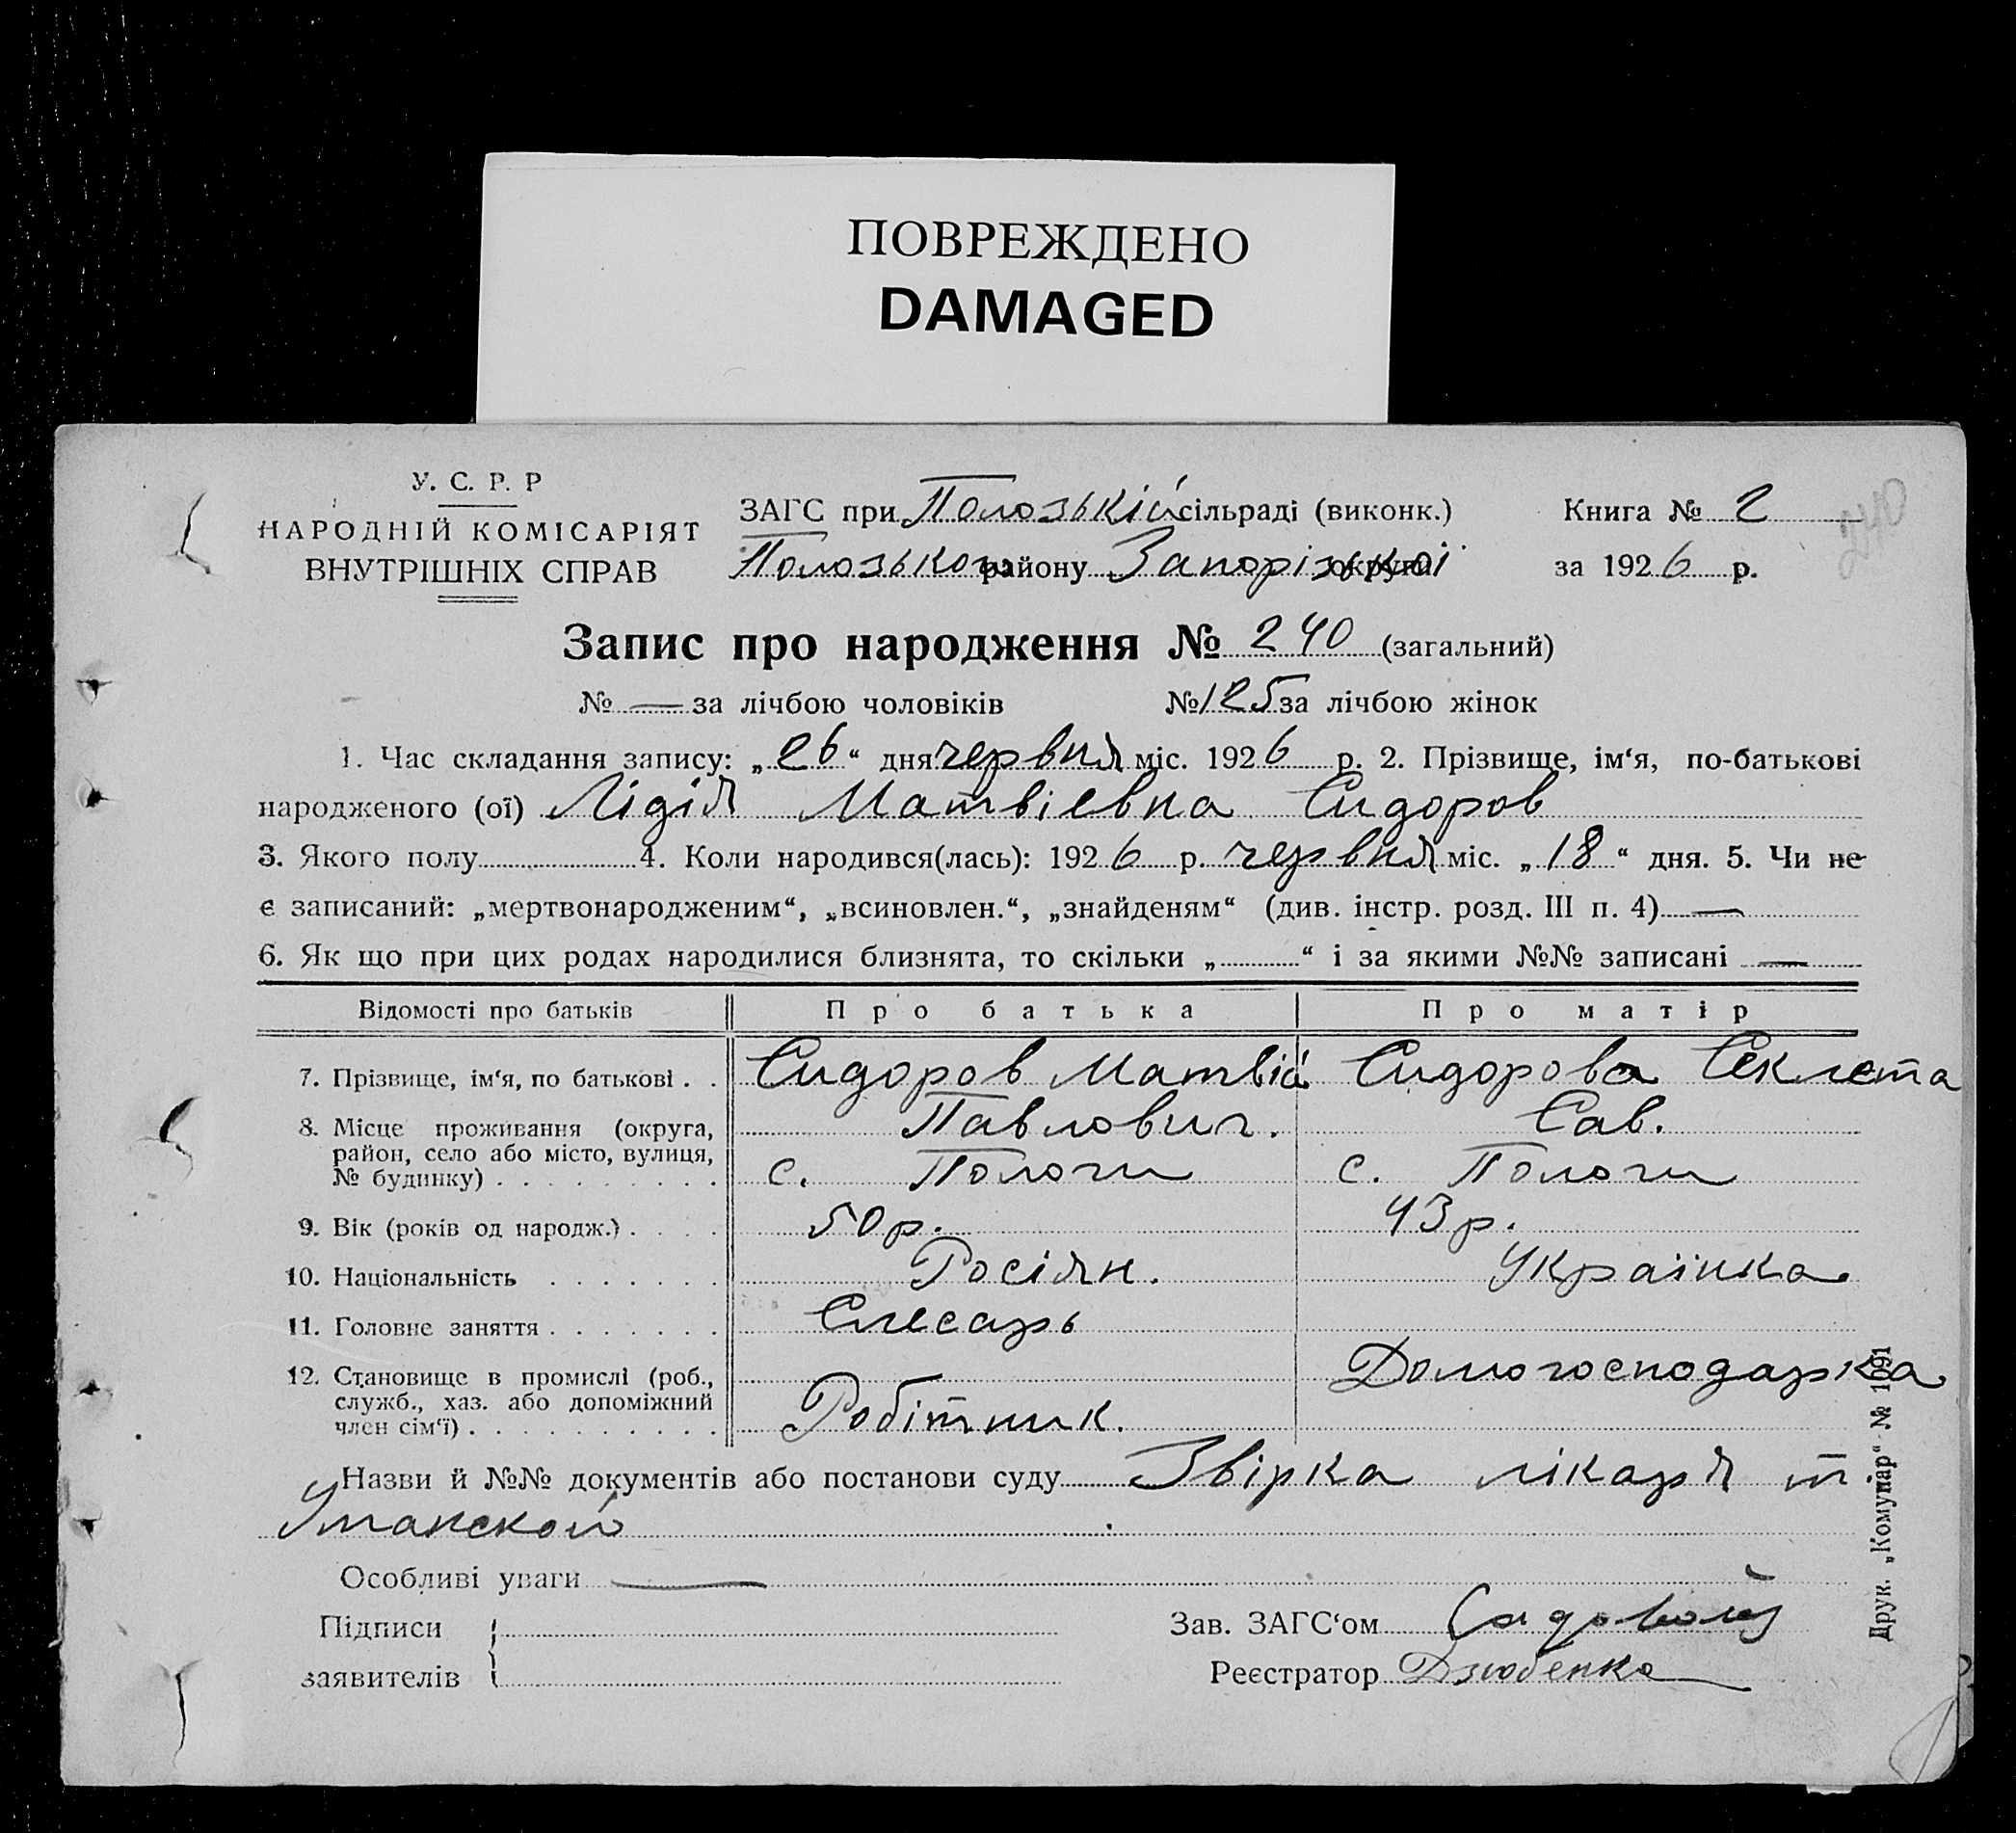 ПОВРЕЖДЕНО
DAMAGED
У. С. Р. Р
НАРОДНІЙ КОМІСАРІЯТ
ВНУТРІШНІХ СПРАВ
ЗАГС при Полозькій сільраді (виконк.)
Полозького району Запорізької округи
Книга № 2
за 1926 р.
240
Запис про народження № 240 (загальний)
№ — за лічбою чоловіків № 125 за лічбою жінок
1. Час складання запису: „26“ дня червня міс. 1926 р. 2. Прізвище, ім‘я, по-батькові
народженого (ої) Лідія Матвієвна Сидоров
3. Якого полу 4. Коли народився(лась): 1926 р. червня міс. „18“ дня. 5. Чи не
є записаний: „мертвонародженим“, „всиновлен.“, „знайденям“ (див. інстр. розд. III п. 4) —
6. Як що при цих родах народилися близнята, то скільки „ “ і за якими №№ записані —
Відомості про батьків Про батька Про матір
7. Прізвище, ім‘я, по батькові . . Сидоров Матвій Сидорова Секлета
Павлович. Сав.
8. Місце проживання (округа,
район, село або місто, вулиця,
№ будинку) . . . . . . . . . с. Пологи с. Пологи
9. Вік (років од народж.) . . . . 50 р. 43 р.
10. Національність . . . . . . . Росіян. Українка
11. Головне заняття . . . . . . . Слесарь
12. Становище в промислі (роб.,
служб., хаз. або допоміжний
член сім‘ї) . . . . . . . . . . Робітник. Домогосподарка
Назви й №№ документів або постанови суду Звірка лікаря т
Уманской
Особливі уваги —
Підписи
заявителів
Зав. ЗАГС‘ом
Реєстратор Дзюбенко
Друк. „Комунар“ № 1091